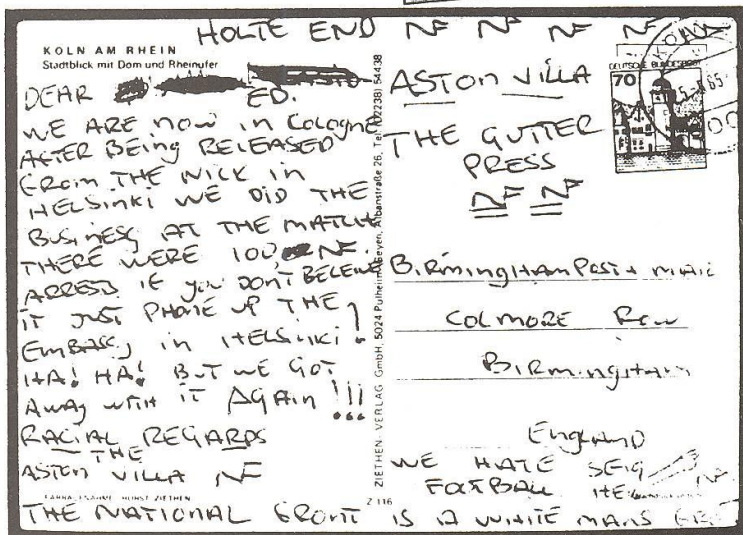 HOLTE END NF NF NF NF
KOLN AM RHEIN
Stadtblick mit Dom und Rheinufer
DEAR
ED.
WE ARE NOW IN COLOGNE
AFTER BEING RELEASED
FROM THE NICK IN
HELSINKI WE DID THE
BUSINESS AT THE MATCH
THERE WERE 100 NF.
ARRESTS IF YOU DON'T BELEIVE
IT JUST PHONE UP THE
EMBASSY IN HELSINKI!
HA! HA! BUT WE GOT
AWAY WITH IT AGAIN!!!
RACIAL REGARDS
THE
ASTON VILLA NF
FARBAUFNAHME: HORST ZIETHEN
ZIETHEN-VERLAG GmbH, 5024 Pulheim-Geyen, Albanstraße 26, Tel. (02238) 54438
Z 116
KÖLN
DEUTSCHE BUNDESPOST
70
ASTON VILLA
THE GUTTER
PRESS
NF NF
BIRMINGHAM POST + MAIL
COLMORE ROW
BIRMINGHAM
ENGLAND
WE HATE SEIG
FOOTBALL HEIL NF
THE NATIONAL FRONT IS A WHITE MANS